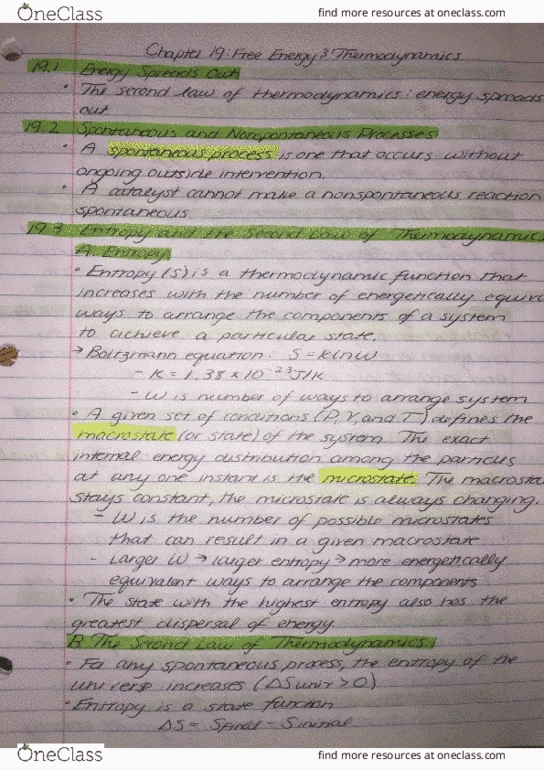 OneClass
find more resources at oneclass.com
Chapter 19: Free Energy & Thermodynamics
19.1 Energy Spreads Out
• The second law of thermodynamics: energy spreads
out
19.2 Spontaneous and Nonspontaneous Processes
• A spontaneous process is one that occurs without
ongoing outside intervention.
• A catalyst cannot make a nonspontaneous reaction
spontaneous
19.3 Entropy and the Second Law of Thermodynamics
A. Entropy
• Entropy (S) is a thermodynamic function that
increases with the number of energetically equiv
ways to arrange the components of a system
to achieve a particular state.
→ Boltzmann equation: S = k ln W
- K = 1.38 x 10⁻²³ J/K
- W is number of ways to arrange system
• A given set of conditions (P, V, and T) defines the
macrostate (or state) of the system. The exact
internal energy distribution among the particles
at any one instant is the microstate. The macrosta
stays constant, the microstate is always changing.
- W is the number of possible microstates
that can result in a given macrostate
- Larger W → larger entropy → more energetically
equivalent ways to arrange the components
• The state with the highest entropy also has the
greatest dispersal of energy
B. The Second Law of Thermodynamics
• For any spontaneous process, the entropy of the
universe increases (ΔSuniv > 0)
• Entropy is a state function
ΔS = Sfinal - Sinitial
OneClass
find more resources at oneclass.com